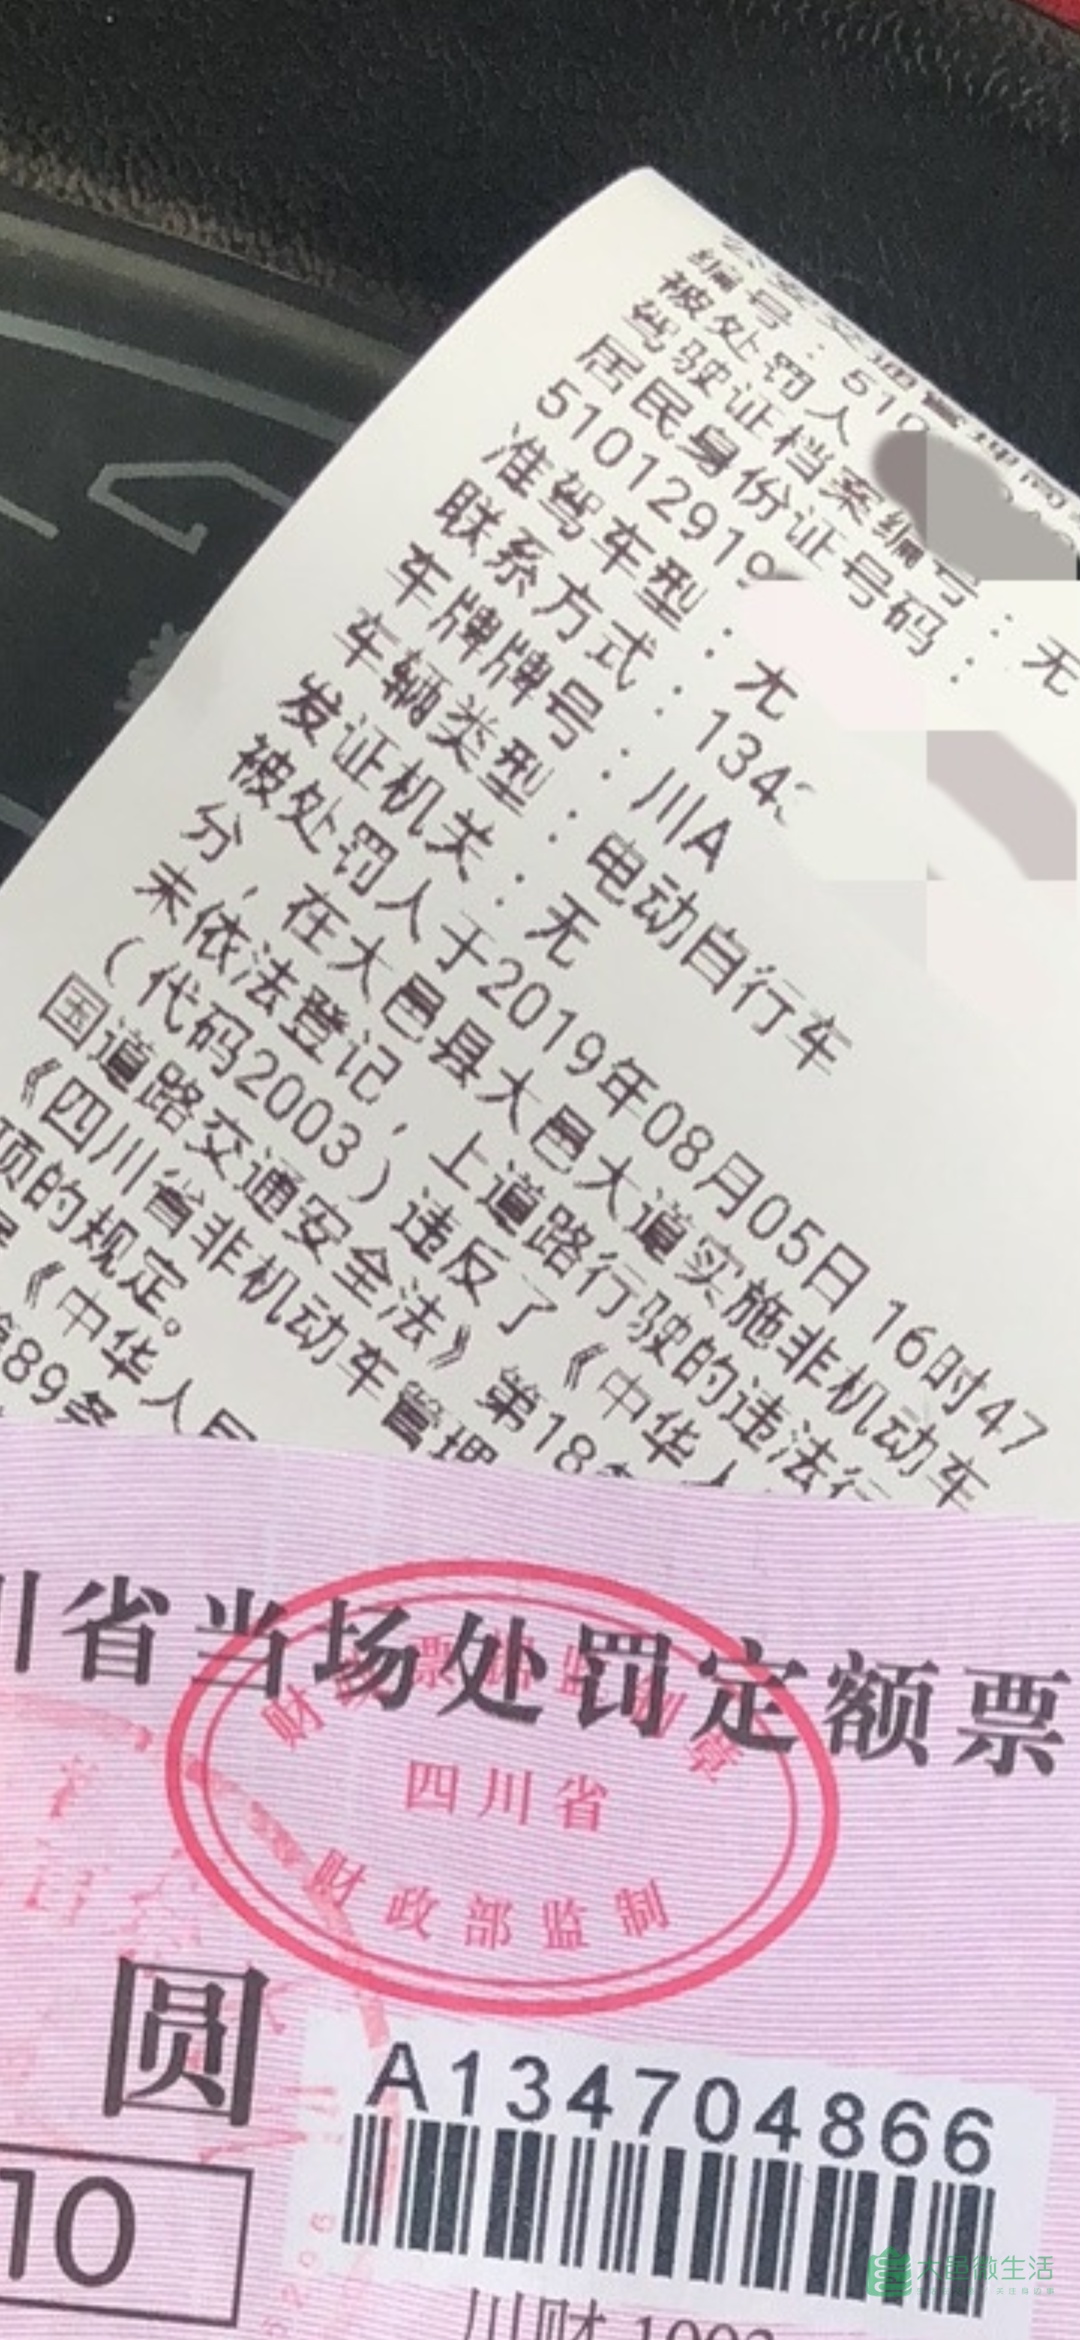 编号：510
被处罚人
驾驶证档案编号：无
居民身份证号码：
51012919
准驾车型：无
联系方式：134
车牌牌号：川A
车辆类型：电动自行车
发证机关：无
被处罚人于2019年08月05日16时47
分，在大邑县大邑大道实施非机动车
未依法登记，上道路行驶的违法行
（代码2003）违反了《中华人
国道路交通安全法》第18条
《四川省非机动车管理
项的规定。
《中华人民
第89条
川省当场处罚定额票
财政票据监制章
四川省
财政部监制
圆
10
A134704866
川财1002
大邑微生活